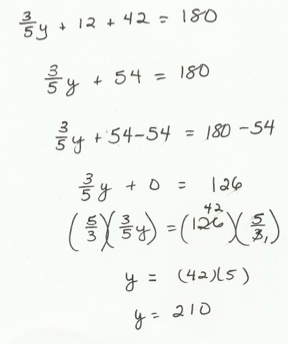 3/5 y + 12 + 42 = 180
3/5 y + 54 = 180
3/5 y + 54-54 = 180 - 54
3/5 y + 0 = 126
42
(5/3)(3/5 y) = (126)(5/3) 1
y = (42)(5)
y = 210